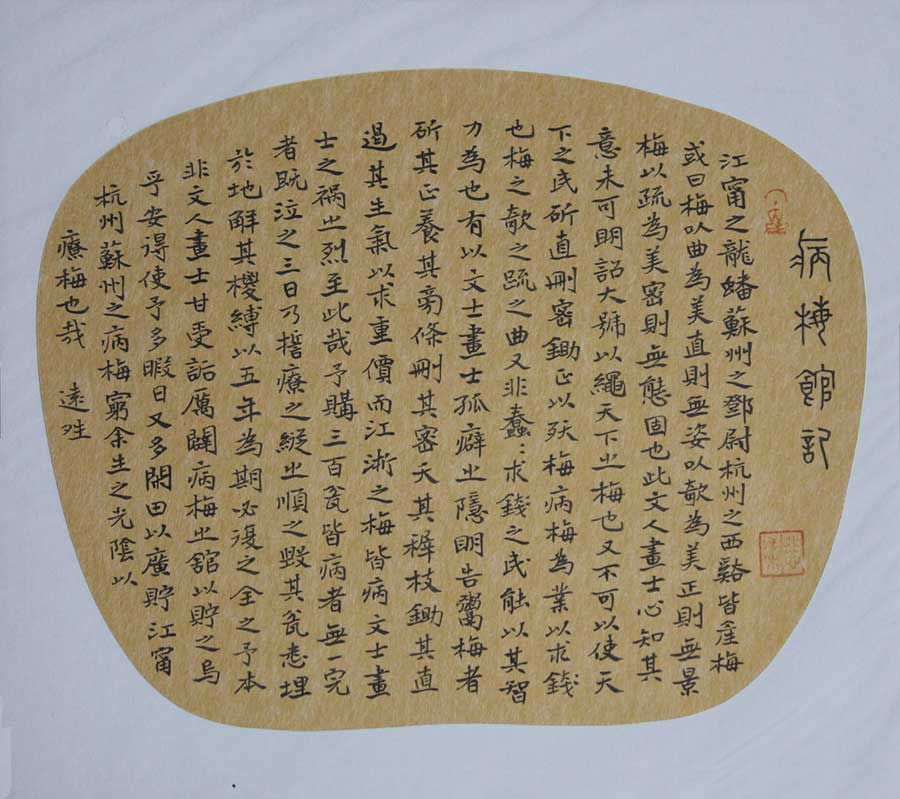 病梅館記
江甯之龍蟠蘇州之鄧尉杭州之西谿皆產梅
或曰梅以曲為美直則無姿以欹為美正則無景
梅以疏為美密則無態固也此文人畫士心知其
意未可明詔大號以繩天下之梅也又不可以使天
下之民斫直刪密鋤正以殀梅病梅為業以求錢
也梅之欹之疏之曲又非蠢〻求錢之民能以其智
力為也有以文士畫士孤癖之隱明告鬻梅者
斫其正養其旁條刪其密夭其稺枝鋤其直
遏其生氣以求重價而江浙之梅皆病文士畫
士之禍之烈至此哉予購三百瓮皆病者無一完
者既泣之三日乃誓療之縱之順之毀其瓮悉埋
於地解其椶縛以五年為期必復之全之予本
非文人畫士甘受詬厲闢病梅之館以貯之烏
乎安得使予多暇日又多閒田以廣貯江甯
杭州蘇州之病梅窮余生之光陰以
療梅也哉 遠